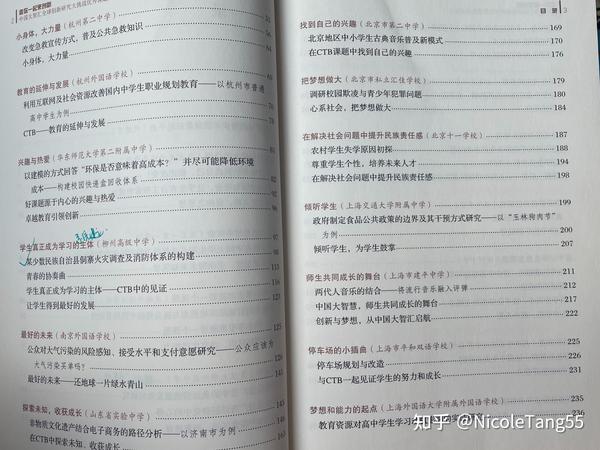 我在一起来创新
2
小身体，大力量（杭州第二中学）
改变急救宣传方式，普及公共急救知识
56
小身体，大力量
64
教育的延伸与发展（杭州外国语学校）
利用互联网及社会资源改善国内中学生职业规划教育——以杭州市普通
高中学生为例
70
CTB——教育的延伸与发展
78
兴趣与热爱（华东师范大学第二附属中学）
81
以建模的方式回答“环保是否意味着高成本？”并尽可能降低环境
成本——构建校园快递盒回收体系
82
好课题源于内心的兴趣与热爱
92
卓越教育引领创新
96
学生真正成为学习的主体（柳州高级中学）
97
某少数民族自治县侗寨火灾调查及消防体系的构建
98
青春的协奏曲
112
学生真正成为学习的主体——CTB中的见证
116
让学生得到最好的发展
121
最好的未来（南京外国语学校）
125
公众对大气污染的风险感知、接受水平和支付意愿研究——公众应该为
大气污染买单吗？
最好的未来——还地球一片绿水青山
探索未知，收获成长（山东省实验中学）
145
非物质文化遗产结合电子商务的路径分析——以济南市为例
在CTB中探索未知、收获成长
163
目 录
3
找到自己的兴趣（北京市第二中学）
169
北京地区中小学生古典音乐普及新模式
170
在CTB课题中找到自己的兴趣
176
把梦想做大（北京市私立汇佳学校）
179
调研校园欺凌与青少年犯罪问题
180
心系社会，把梦想做大
184
在解决社会问题中提升民族责任感（北京十一学校）
187
农村学生失学原因初探
188
尊重学生个性，培养未来人才
194
在解决社会问题中提升民族责任感
198
倾听学生（上海交通大学附属中学）
199
政府制定食品公共政策的边界及其干预方式研究——以“玉林狗肉节”
为例
200
倾听学生，为学生鼓掌
207
师生共同成长的舞台（上海市建平中学）
211
两代人音乐的结合——将流行音乐融入评弹
212
中国大智慧，师生共同成长的舞台
217
创新与梦想，从中国大智汇启航
222
停车场的小插曲（上海市平和双语学校）
225
停车场规划与改造
226
与CTB一起见证学生的努力和成长
231
梦想和能力的起点（上海外国语大学附属外国语学校）
235
教育资源对高中学生学习
236
知乎 @NicoleTang55